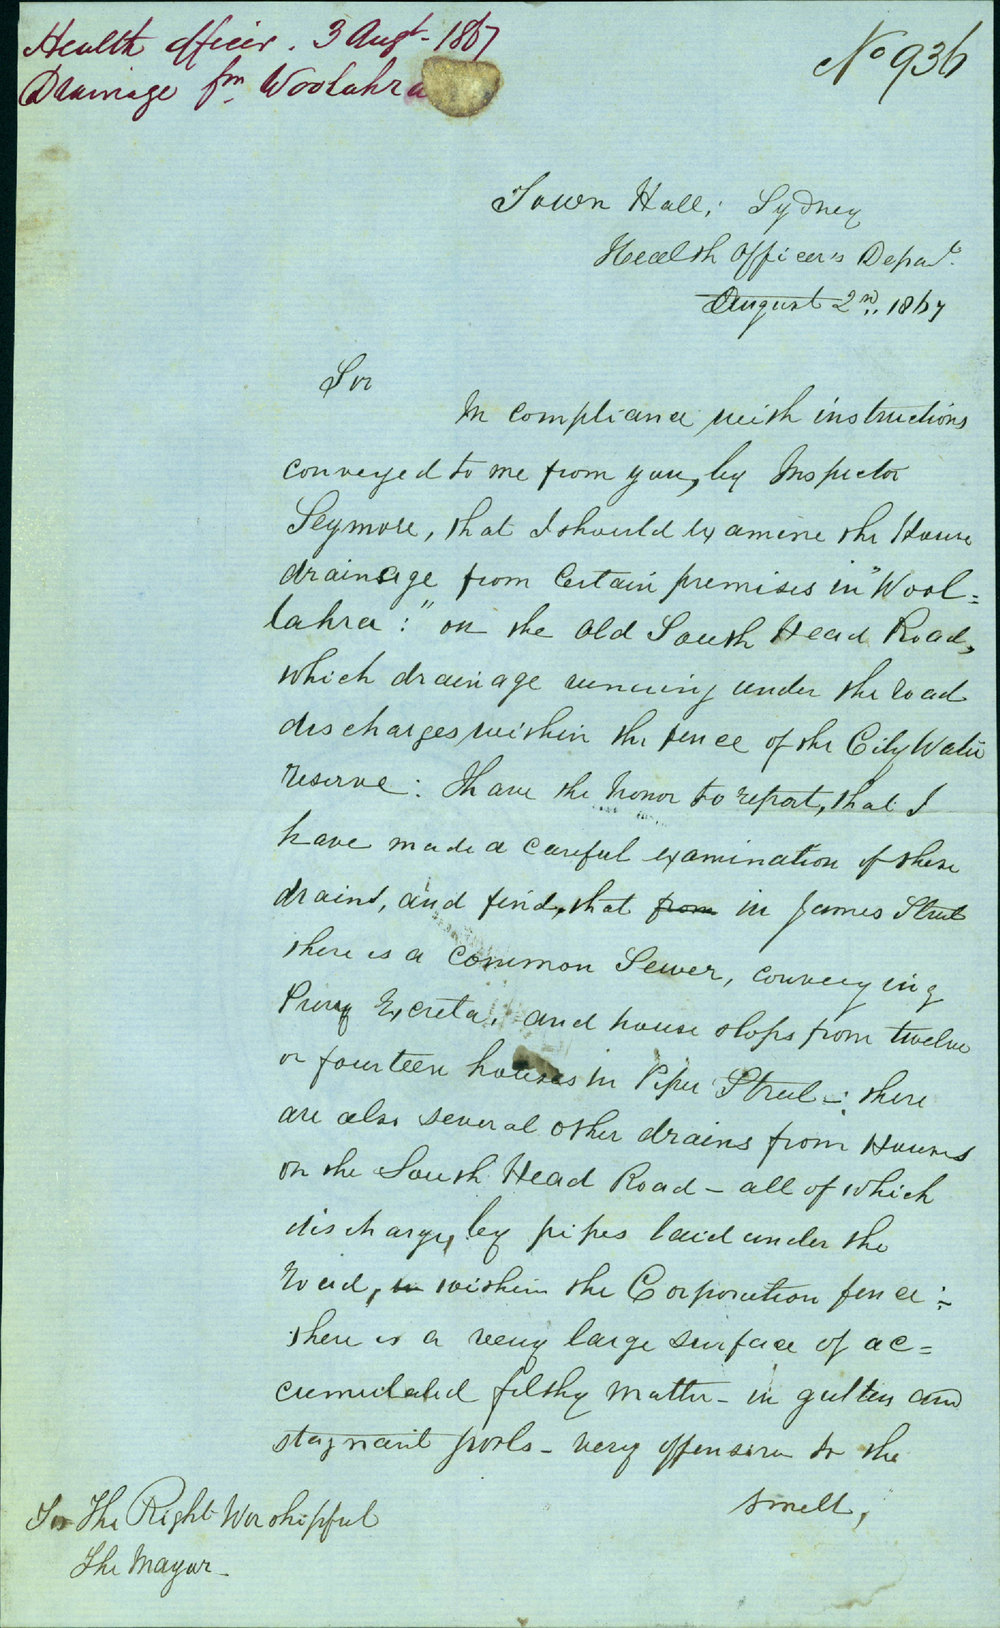 Health officer. 3 Augt. 1867
Drainage fm Woolahra
No 936
Town Hall; Sydney
Health Officer's Depart.
August 2nd, 1867
Sir
In compliance with instructions
conveyed to me from you, by Inspector
Seymore, that I should examine the House
drainage from certain premises in "Wool=
lahra:" on the Old South Head Road,
which drainage running under the road
discharges within the fence of the City Water
reserve: I have the honor to report, that I
have made a careful examination of these
drains, and find, that from in James Street
there is a common Sewer, conveying
Privy Excreta, and house slops from twelve
or fourteen houses in Piper Street -: there
are also several other drains from Houses
on the South Head Road - all of which
discharge, by pipes laid under the
road, in within the Corporation fence:-
there is a very large surface of ac=
cumulated filthy matter - in gutters and
stagnant pools - very offensive to the
smell,
To The Right Worshipful
The Mayor -